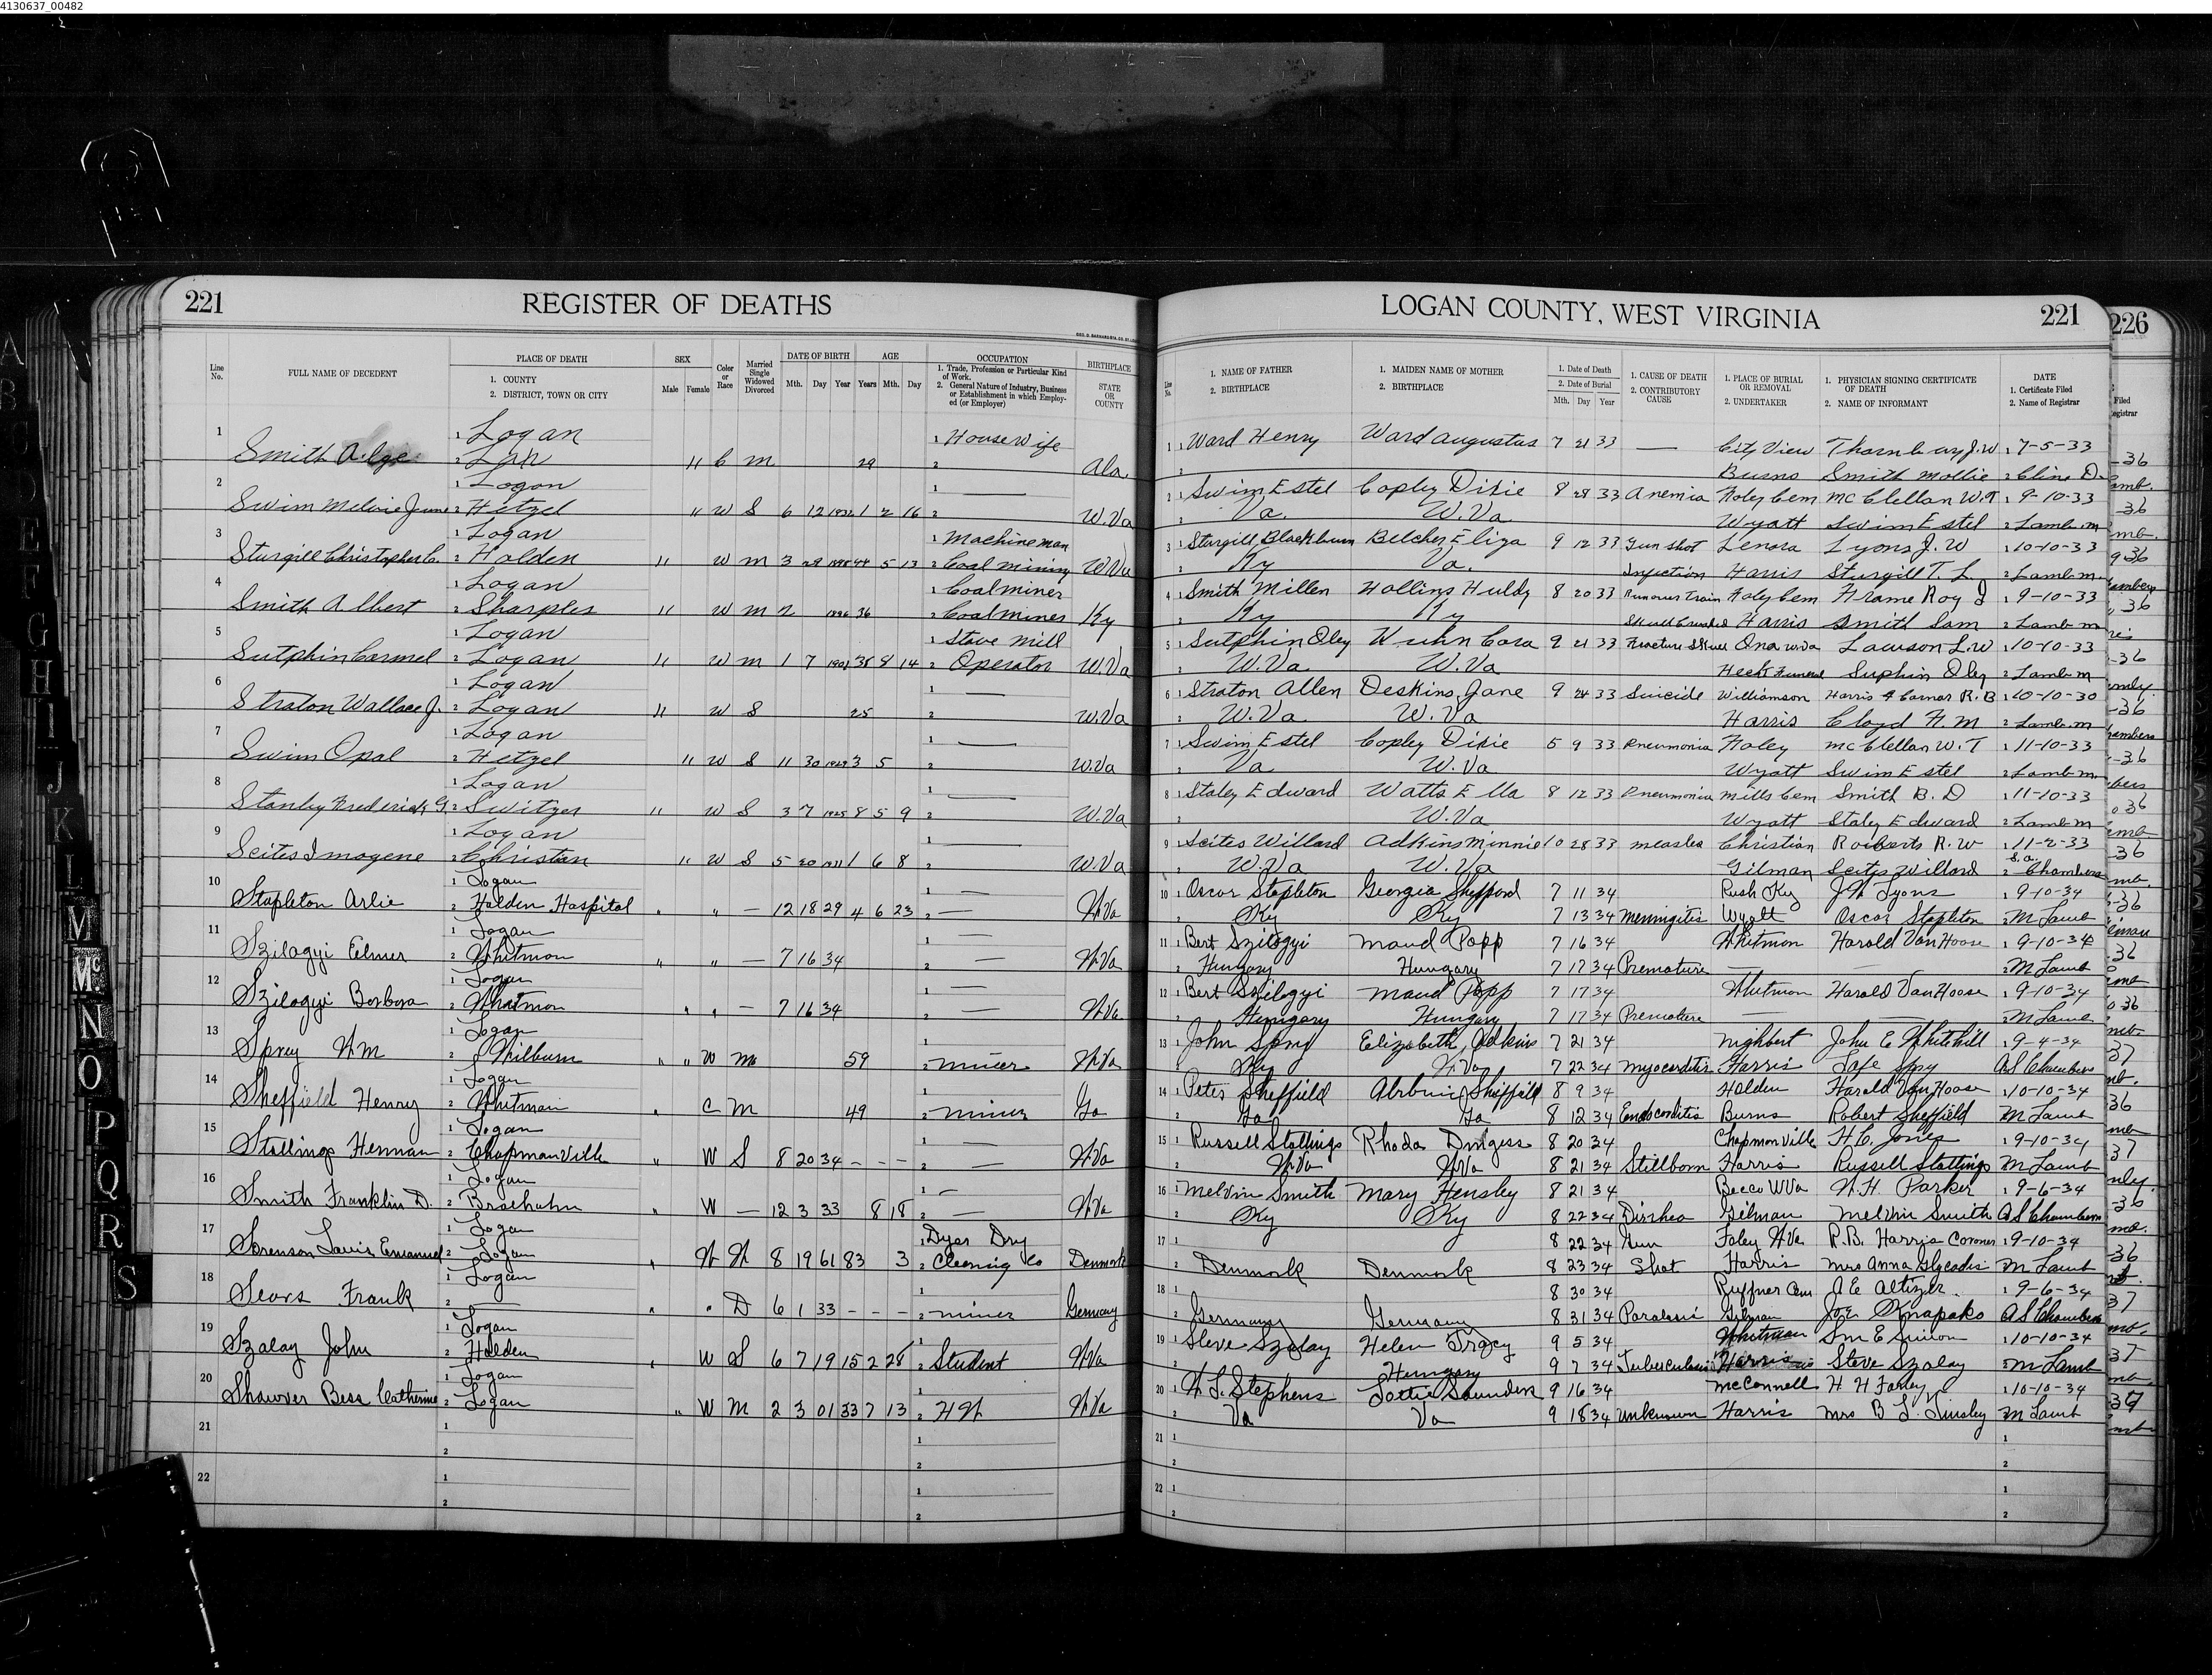 4130637_00482
221 REGISTER OF DEATHS
Line No. FULL NAME OF DECEDENT PLACE OF DEATH 1. COUNTY 2. DISTRICT, TOWN OR CITY SEX Male Female Color or Race Married Single Widowed Divorced DATE OF BIRTH Mth. Day Year AGE Years Mth. Day OCCUPATION 1. Trade, Profession or Particular Kind of Work. 2. General Nature of Industry, Business or Establishment in which Employed (or Employer) BIRTHPLACE STATE OR COUNTY
1 1 Logan 1 Housewife
Smith 2 " C m 29 2 Ala.
2 1 Logan 1 —
Swim Melvie June 2 Hetzel " W S 6 12 1 2 16 2 W.Va
3 1 Logan 1 Machine man
Sturgill Christopher C. 2 Holden " W m 3 44 5 13 2 Coal mining W.Va
4 1 Logan 1 Coal miner
Smith Albert 2 Sharples " W m 2 1896 36 2 Coal mines Ky
5 1 Logan 1 Stave Mill
Sutphin Carmel 2 Logan " W m 1 7 8 14 2 Operator W.Va
6 1 Logan 1 —
Straton Wallace J. 2 Logan " W S 25 2 W.Va
7 1 Logan 1 —
Swim Opal 2 Hetzel " W S 11 30 1929 3 5 2 W.Va
8 1 Logan 1 —
Stanley Frederick G 2 Switzer " W S 3 7 1925 8 5 9 2 W.Va
9 1 Logan 1 —
Scites Imogene 2 Christian " W S 5 20 1 6 8 2 W.Va
10 1 Logan 1 —
Stapleton Arlie 2 Holden Hospital " " — 12 18 29 4 6 23 2 — W.Va
11 1 Logan 1 —
Szilagyi Elmer 2 Whitman " " — 7 16 34 2 — W.Va
12 1 Logan 1 —
Szilogyi Borbora 2 Whitmon " " — 7 16 34 2 — W.Va
13 1 Logan 1
Spray Wm 2 Wilburn " " W m 59 2 miner W.Va
14 1 Logan 1
Sheffield Henry 2 Whitman " C M 49 2 miner Ga
15 1 Logan 1 —
Stallings Herman 2 Chapmanville " W S 8 20 34 - - - 2 — W.Va
16 1 Logan 1 —
Smith Franklin D. 2 Braeholm " W — 12 3 33 8 18 2 — W.Va
17 1 Logan 1 Dyer Dry
Sorenson Louis Emanuel 2 Logan " W W 8 19 61 83 3 2 Cleaning Co Denmark
18 1 Logan 1
Sears Frank 2 — " " D 6 1 33 - - - 2 miner Germany
19 1 Logan 1
Szalay John 2 Holden " W S 6 7 19 15 2 28 2 Student W.Va
20 1 Logan 1
Shawver Bess Catherine 2 Logan " W M 2 3 01 33 7 13 2 H W W.Va
21 1 1
2 2
22 1 1
2 2
LOGAN COUNTY, WEST VIRGINIA 221
Line No. 1. NAME OF FATHER 2. BIRTHPLACE 1. MAIDEN NAME OF MOTHER 2. BIRTHPLACE 1. Date of Death 2. Date of Burial Mth. Day Year 1. CAUSE OF DEATH 2. CONTRIBUTORY CAUSE 1. PLACE OF BURIAL OR REMOVAL 2. UNDERTAKER 1. PHYSICIAN SIGNING CERTIFICATE OF DEATH 2. NAME OF INFORMANT DATE 1. Certificate Filed 2. Name of Registrar
1 1 Ward Henry Ward Augustus 7 21 33 — City View Thornbury J.W 1 7-5-33
2 Burns Smith Mollie 2 Cline D.
2 1 Swim Estel Copley Dixie 8 28 33 Anemia Foley Cem McClellan W.T 1 9-10-33
2 Va. W.Va Wyatt Swim Estel 2 Lamb m
3 1 Sturgill Blackburn Belcher Eliza 9 12 33 Gun shot Lenora Lyons J.W 1 10-10-33
2 Ky Va. Infection Harris Sturgill T. L 2 Lamb m.
4 1 Smith Millen Hollins Huldy 8 20 33 Runover Train Foley Cem Frame Roy J 1 9-10-33
2 Ky Ky Skull Crushed Harris Smith Sam 2 Lamb m
5 1 Sutphin Oley Cora 9 21 33 Fracture Skull Ona W.Va Lawson L.W 1 10-10-33
2 W.Va W.Va Heck Funeral Suphin Oley 2 Lamb m
6 1 Straton Allen Deskins Jane 9 24 33 Suicide Williamson Harris R. B 1 10-10-30
2 W.Va W.Va Harris Cloyd F.M 2 Lamb m
7 1 Swim Estel Copley Dixie 5 9 33 Pneumonia Foley McClellan W.T 1 11-10-33
2 Va W.Va Wyatt Swim Estel 2 Lamb m.
8 1 Staley Edward Watts Ella 8 12 33 Pneumonia Mills Cem Smith B. D 1 11-10-33
2 W.Va Wyatt Staley Edward 2 Lamb m
9 1 Scites Willard Adkins Minnie 10 28 33 measles Christian Roberts R. W 1 11-2-33
2 W.Va W.Va Gilman Scites Willard 2 S.A. Chambers
10 1 Oscar Stapleton Georgia Shepperd 7 11 34 Rush Ky J.W Lyons 1 9-10-34
2 Ky Ky 7 13 34 Menningites Wyatt Oscar Stapleton 2 M Lamb
11 1 Bert Szilogyi Maud Popp 7 16 34 Whitmon Harold VanHoose 1 9-10-34
2 Hungary Hungary 7 17 34 Premature — — 2 M Lamb
12 1 Bert Szilogyi Maud Popp 7 17 34 Whitmon Harold VanHoose 1 9-10-34
2 Hungary Hungary 7 17 34 Premature — — 2 M Lamb
13 1 John Spry Elizabeth Adkins 7 21 34 Nighbert John E Whitehill 1 9-4-34
2 Ky W.Va 7 22 34 Myocarditis Harris Spry A S Chambers
14 1 Peter Sheffield Sheffield 8 9 34 Holden Harold VanHoose 1 10-10-34
2 Ga Ga 8 12 34 Endocarditis Burns Robert Sheffield M Lamb
15 1 Russell Stallings Rhoda Dingess 8 20 34 Chapmanville H.C. Jones 1 9-10-34
2 W.Va W.Va 8 21 34 Stillborn Harris Russell Stallings M Lamb
16 1 Melvin Smith Mary Hensley 8 21 34 Becco W Va W.H. Parker 1 9-6-34
2 Ky Ky 8 22 34 Diarhea Gilman Melvin Smith A S Chambers
17 1 8 22 34 Gun Foley W.Va R.B. Harris Coroner 1 9-10-34
2 Denmark Denmark 8 23 34 Shot Harris Mrs Anna M Lamb
18 1 8 30 34 Ruffner Cem J E Altizer 1 9-6-34
2 Germany Germany 8 31 34 Gilman Joe Knapako A S Chambers
19 1 Steve Szalay Helen Tracy 9 5 34 Whitman 1 10-10-34
2 Hungary 9 7 34 Tuberculosis Harris Steve Szalay 2 M Lamb
20 1 W L Stephens Lottie Saunders 9 16 34 McConnell H H Farley 1 10-10-34
2 Va Va 9 18 34 Unknown Harris Mrs B L Tinsley M Lamb
21 1 1
2 2
22 1 1
2 2
226
Filed
A
B
D
E
F
G
H
I
J
K
L
M
Mc
N
O
P
Q
R
S